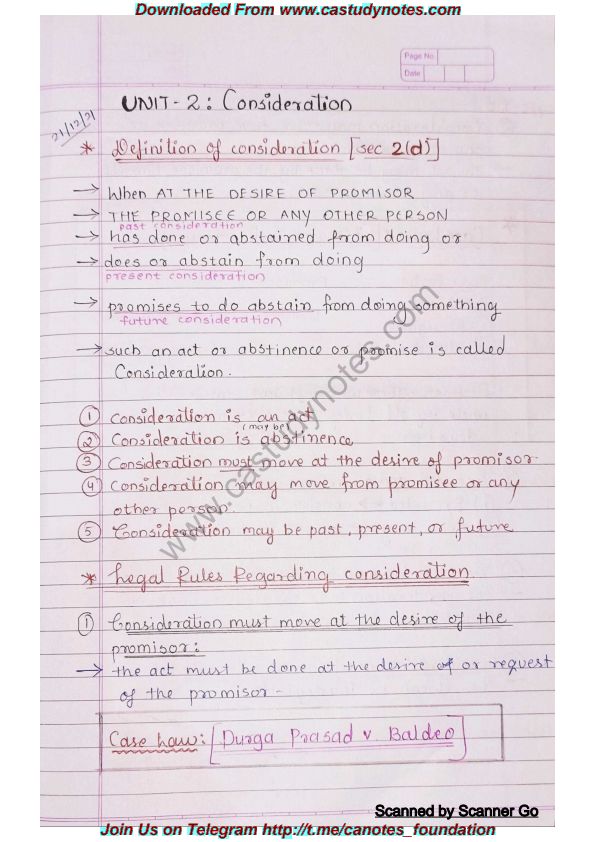 Downloaded From www.castudynotes.com
Page No.
Date
UNIT-2: Consideration
21/12/21
* Definition of consideration [sec 2(d)]
→ When AT THE DESIRE OF PROMISOR
→ THE PROMISEE OR ANY OTHER PERSON
past consideration
→ has done or abstained from doing or
→ does or abstain from doing
present consideration
→ promises to do abstain from doing something
future consideration
→ such an act or abstinence or promise is called
Consideration.
① Consideration is an act
(may be)
② Consideration is abstinence
③ Consideration must move at the desire of promisor.
④ Consideration may move from promisee or any
other person.
⑤ Consideration may be past, present, or future
* Legal Rules Regarding consideration
① Consideration must move at the desire of the
promisor:
→ the act must be done at the desire of or request
of the promisor-
Case Law: [Durga Prasad v Baldeo]
www.castudynotes.com
Scanned by Scanner Go
Join Us on Telegram http://t.me/canotes_foundation